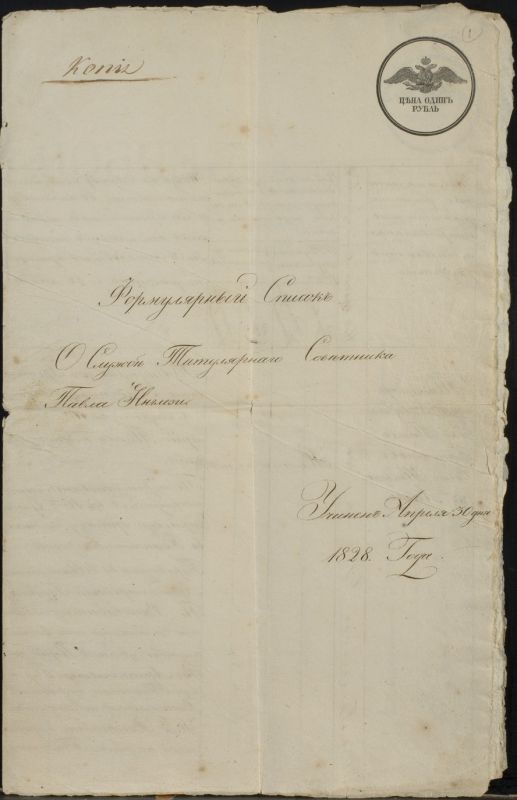 Копія
1
ЦѢНА ОДИНЪ
РУБЛЬ
Формулярный Списокъ
О Службѣ Титулярнаго Совѣтника
Павла
Учиненъ Апреля 30 дня
1828. Года.